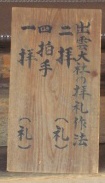 出雲大社の拝礼作法
二拝(礼)
四拍手
一拝(礼)